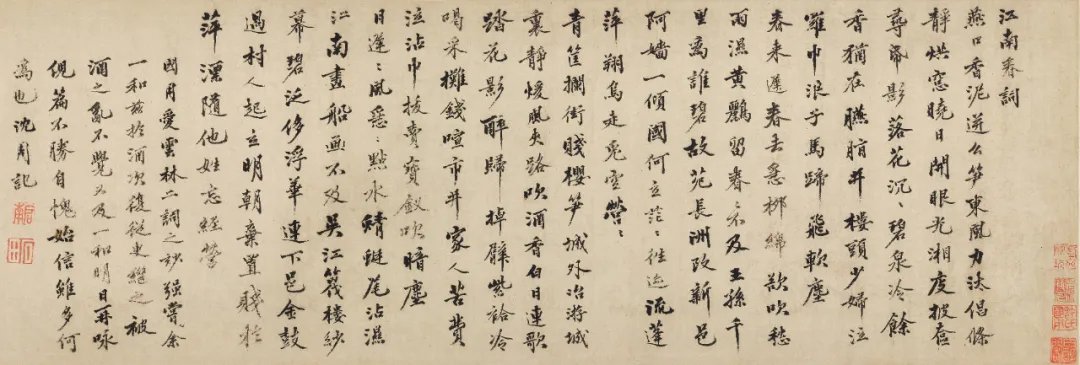 江南春詞
燕口香泥迸幺笋東風力汰倡條
靜烘窓曉日開眼光湘庋披奩
尋帋影落花沉〻碧泉冷餘
香猶在臙脂井樓頭少婦泣
羅巾浪子馬蹄飛軟塵
春來遲春去急柳綿欲吹愁
雨濕黃鸝留春〻不及王孫千
里為誰碧故苑長洲改新邑
阿嬙一傾國何立茫〻往迹流蓬
萍翔烏走兔空營〻
青筐攔街賤櫻笋城外冶游城
裏靜煖風夾路吹酒香白日連歌
踏花影醉歸掉臂紫袷冷
喝采攤錢喧市井家人苦費
泣沾巾拔賣寶釵吹暗塵
日遲〻風急〻點水蜻蜓尾沾濕
江南畫船畫不及吳江篾樓紗
幕碧泛侈浮華連下邑金鼓
過村人起立明朝棄置賤於
萍漂隨他姓忘經營
國用愛雲林二詞之妙強嘗余
一和茲於酒次復從臾繼之被
酒之亂不覺又及一和明日再咏
倪篇不勝自愧始信雖多何
為也沈周記